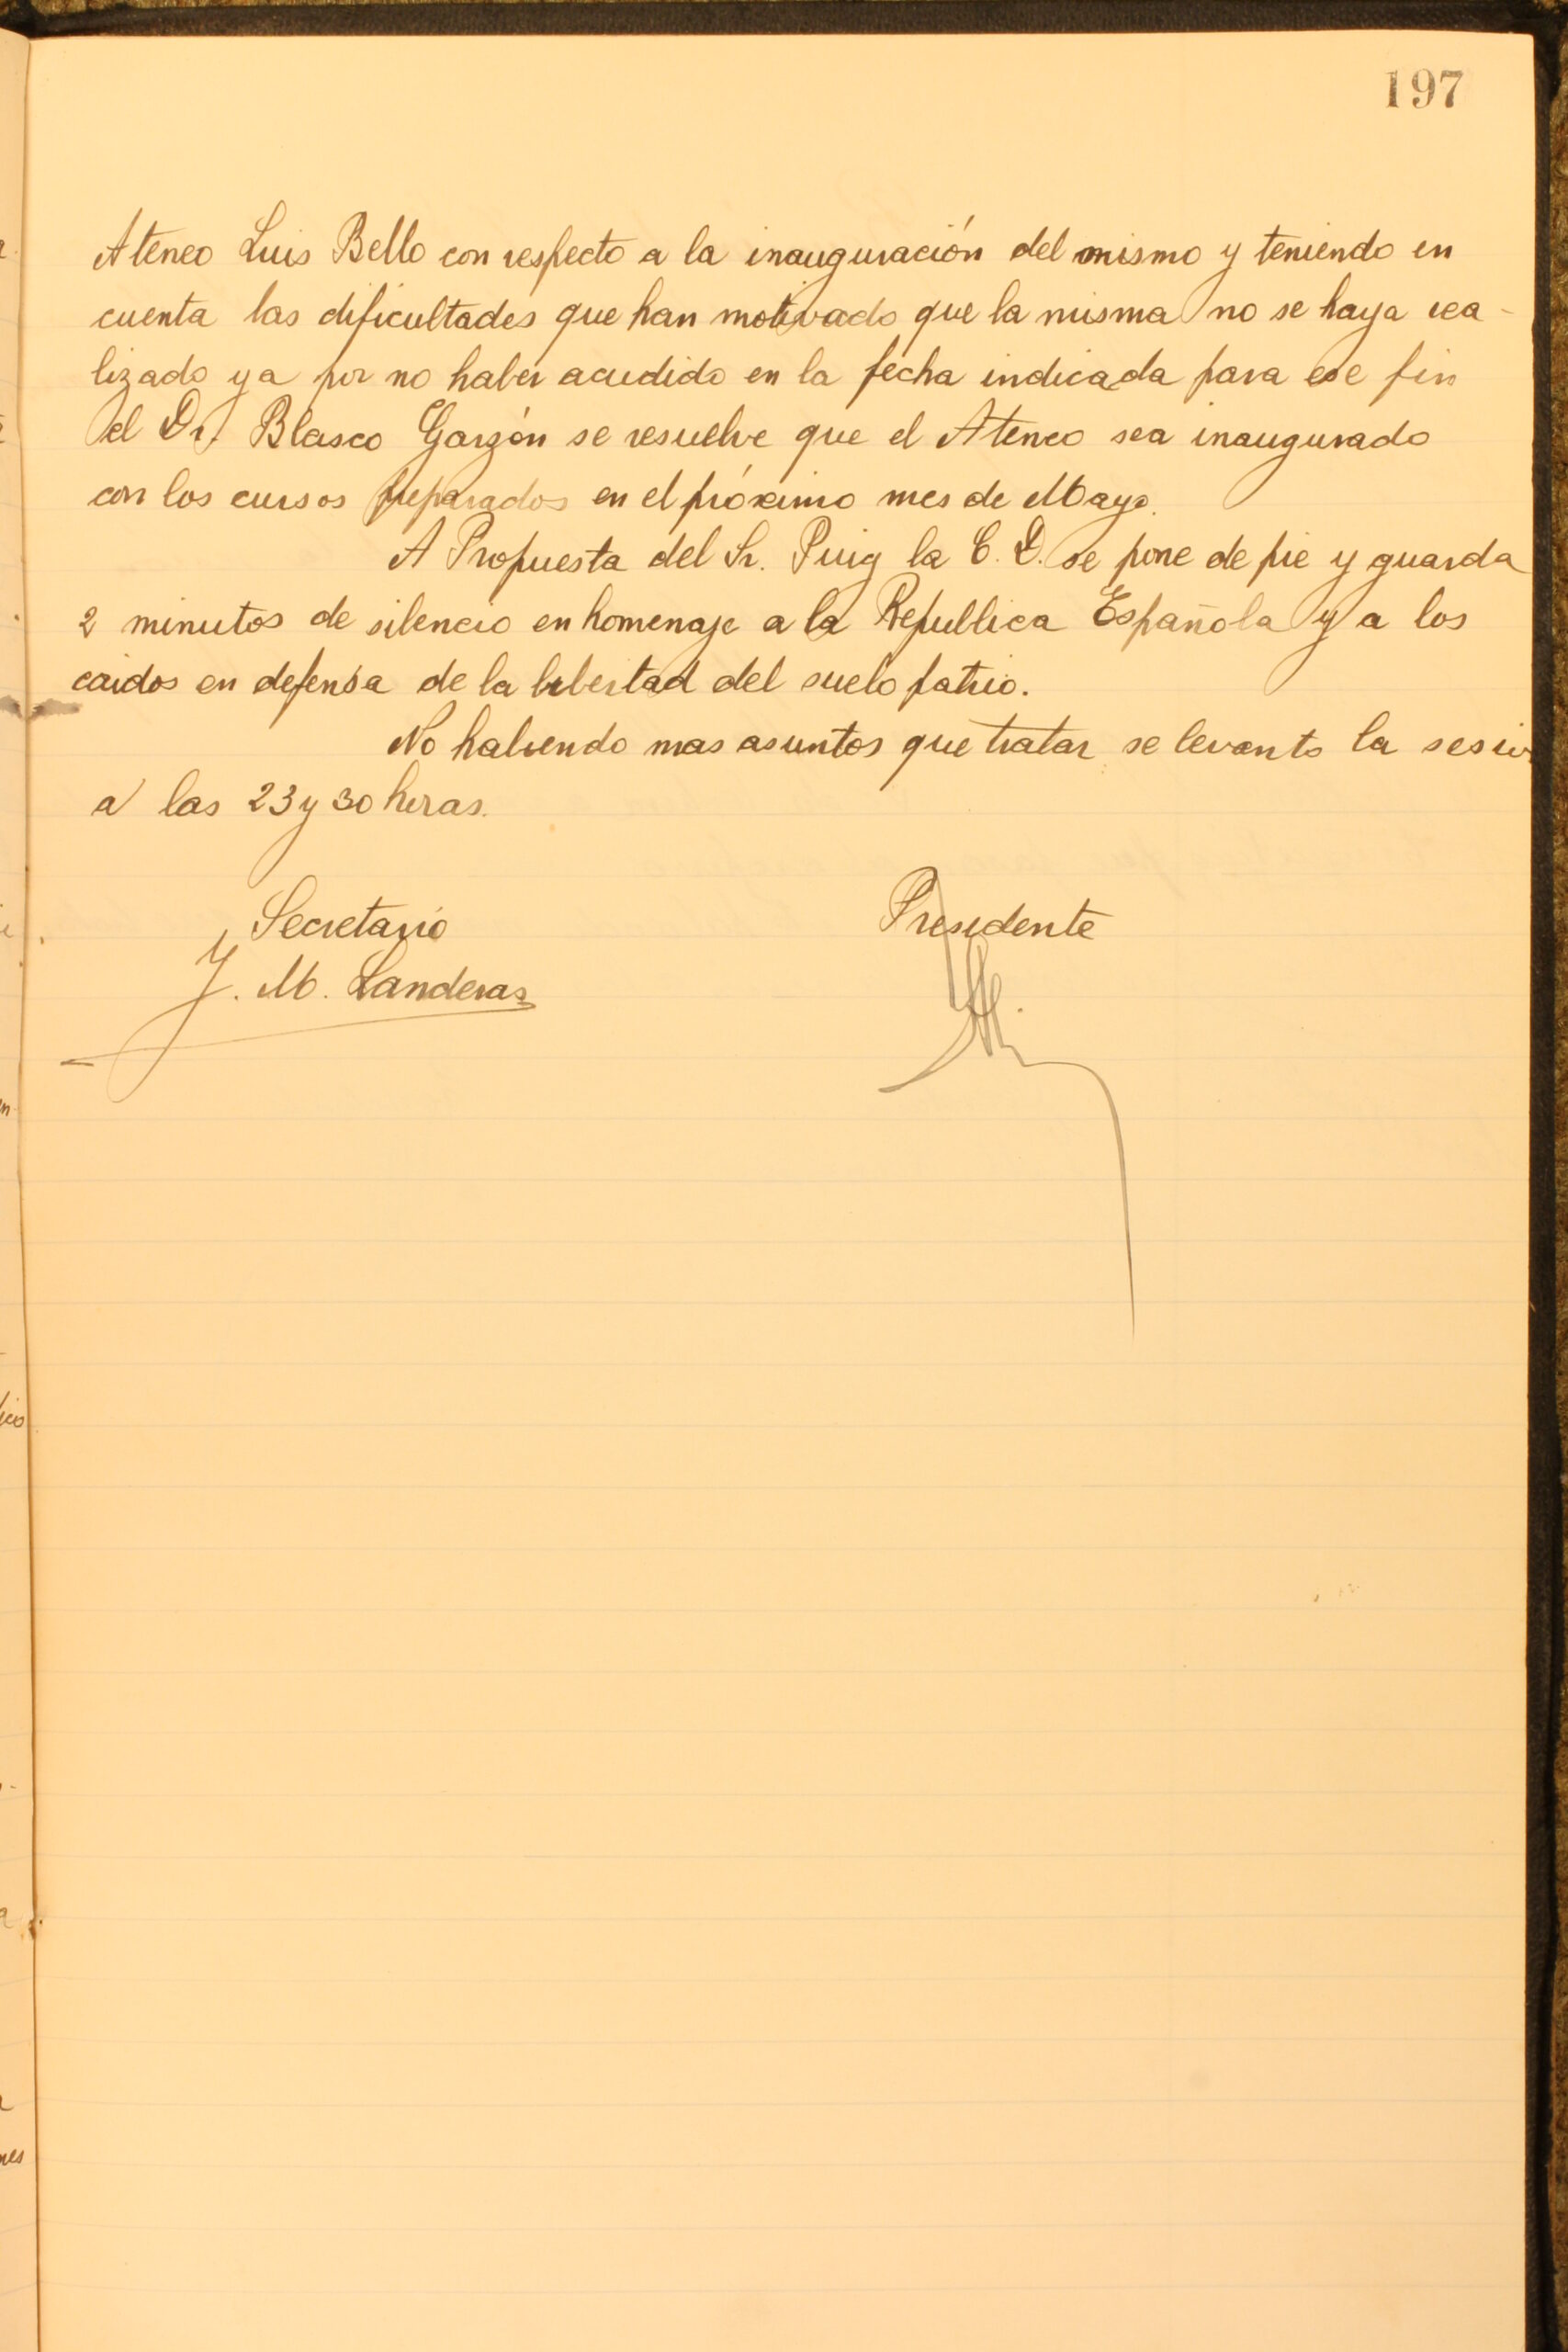 197
Ateneo Luis Bello con respecto a la inauguración del mismo y teniendo en
cuenta las dificultades que han motivado que la misma no se haya rea-
lizado ya por no haber acudido en la fecha indicada para ese fin
el Dr. Blasco Garzón se resuelve que el Ateneo sea inaugurado
con los cursos preparados en el próximo mes de Mayo.
A Propuesta del Sr. Puig la C. D. se pone de pie y guarda
2 minutos de silencio en homenaje a la Republica Española y a los
caidos en defensa de la libertad del suelo patrio.
No habiendo mas asuntos que tratar se levanto la sesion
a las 23 y 30 horas.
Secretario Presidente
J. M. Landeras